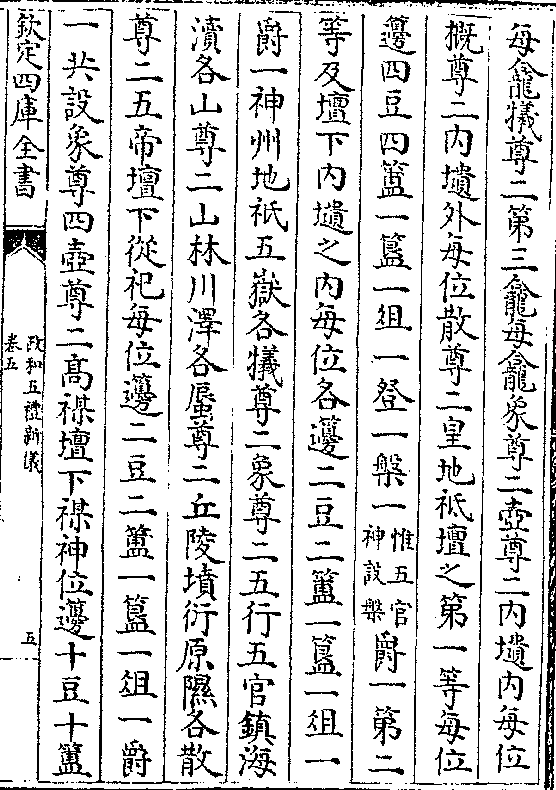 每龕犧尊二第三龕每龕象尊二壺尊二内壝内每位
概尊二内壝外每位散尊二皇地祇壇之第一等每位
籩四豆四簠一簋一俎一登一槃一惟五官神設槃爵一第二
等及壇下内壝之内每位各籩二豆二簠一簋一俎一
爵一神州地祇五嶽各犧尊二象尊二五行五官鎮海
瀆各山尊二山林川澤各蜃尊二丘陵墳衍原隰各散
尊二五帝壇下從祀每位籩二豆二簠一簋一俎一爵
一共設象尊四壺尊二高禖壇下禖神位籩十豆十簠
欽定四庫全書
政和五禮新儀
卷五
五